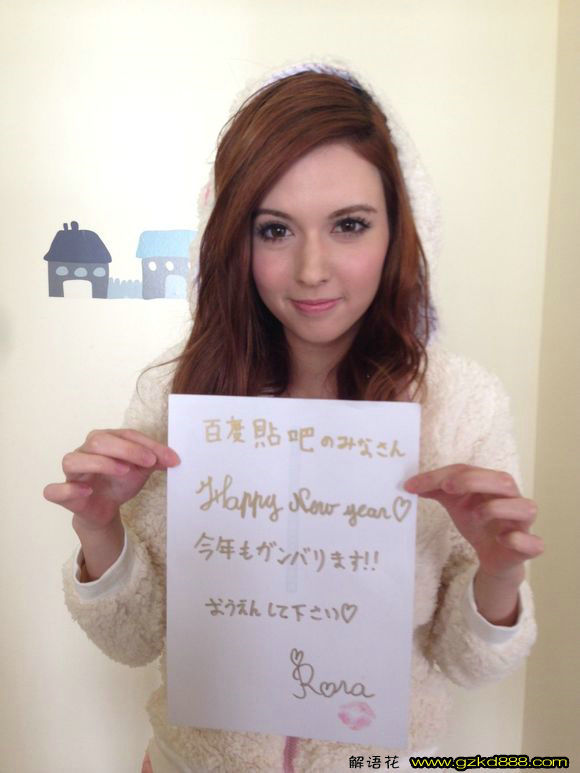 百度貼吧のみなさん
Happy New year♡
今年もガンバリます!!
おうえんして下さい♡
Rora
解语花 www.gzkd888.com